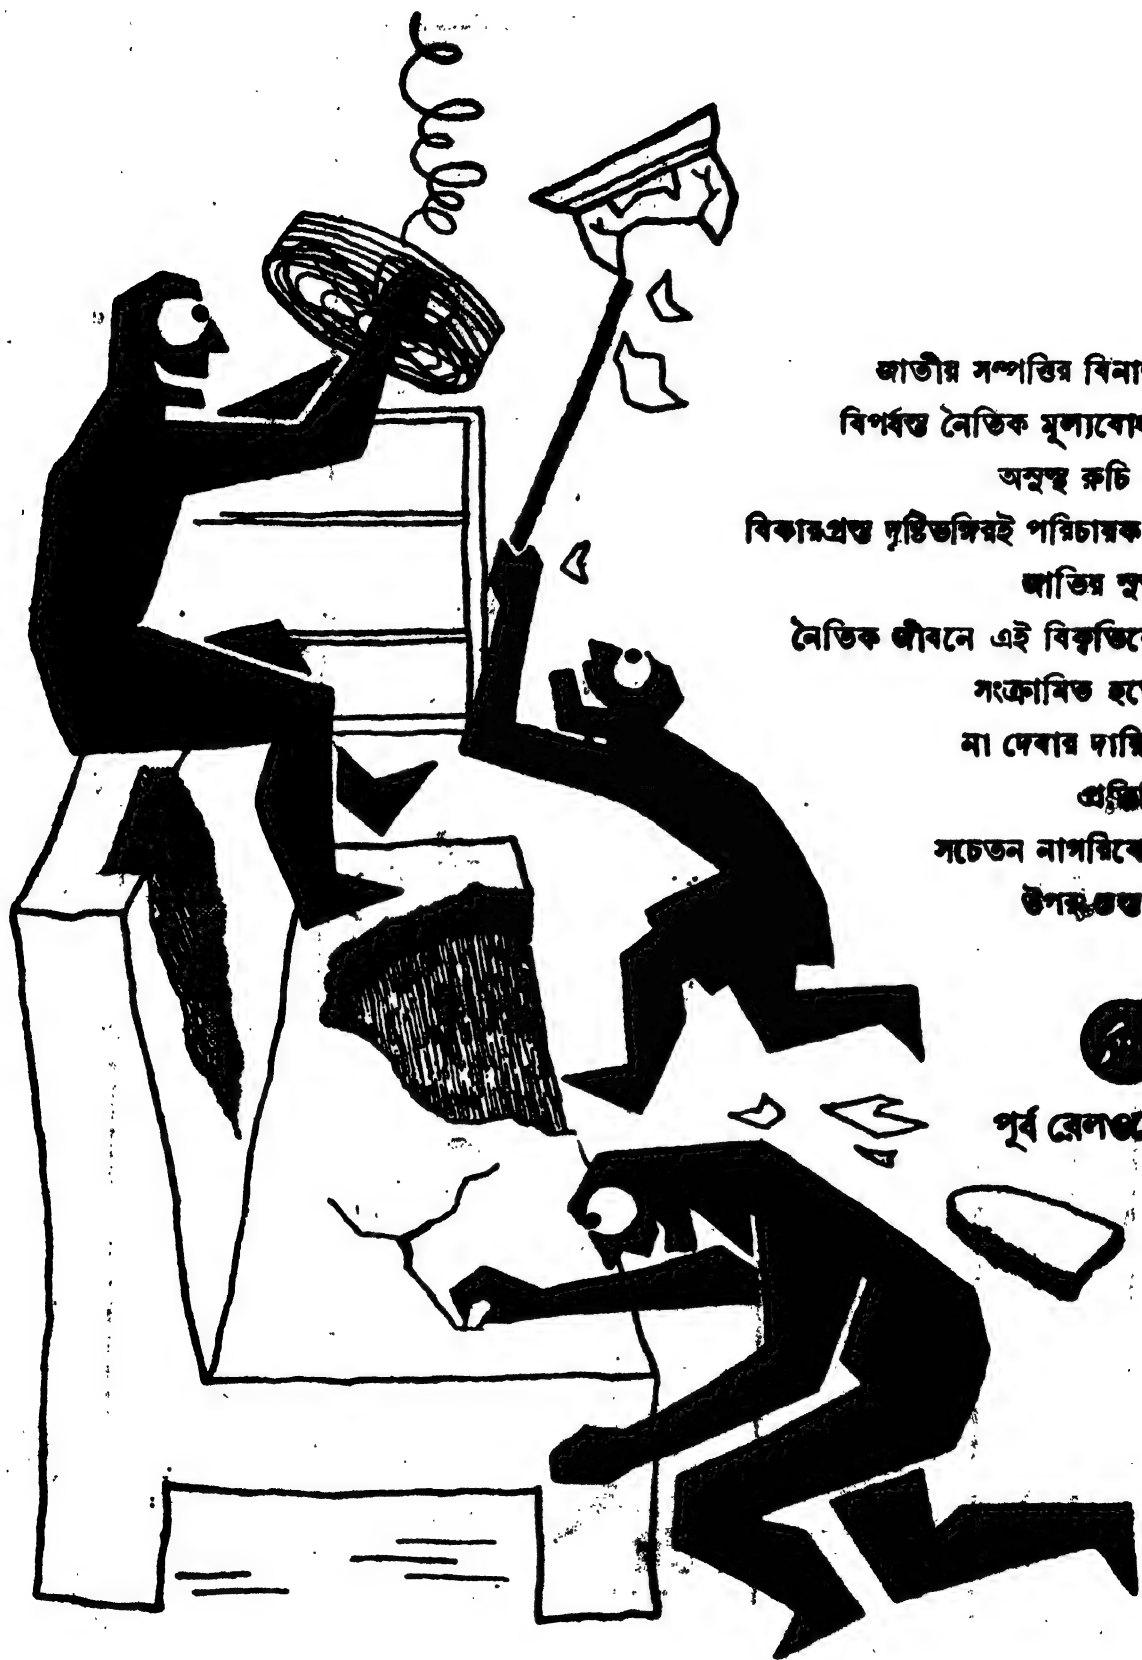 জাতীয় সম্পত্তির বিনা
বিপর্যস্ত নৈতিক মূল্যবো
অসুস্থ রুচি
বিকারগ্রস্ত দৃষ্টিভঙ্গিরই পরিচায়ক
জাতির সু
নৈতিক জীবনে এই বিকৃতি
সংক্রামিত হ
না দেবার দায়ি
প্রতি
সচেতন নাগরিকে
উপর
পূর্ব রেলও